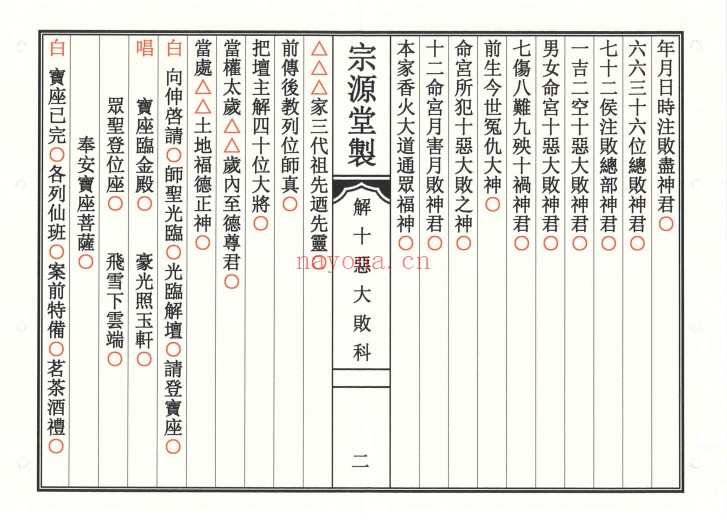 年月日時注敗盡神君○
六六三十六位總敗神君○
七十二侯注敗總部神君○
一吉二空十惡大敗神君○
男女命宮十惡大敗神君○
七傷八難九殃十禍神君○
前生今世冤仇大神○
命宮所犯十惡大敗之神○
十二命宮月害月敗神君○
本家香火大道通眾福神○
宗源堂製
解十惡大敗科
二
△△△家三代祖先迺先靈○
前傳後教列位師真○
把壇主解四十位大將○
當權太歲△△歲內至德尊君○
當處△△土地福德正神○
白 向伸啓請○師聖光臨○光臨解壇○請登寶座○
唱 寶座臨金殿○ 豪光照玉軒○
眾聖登位座○ 飛雪下雲端○
奉安寶座菩薩○
白 寶座已完○各列仙班○案前特備○茗茶酒禮○
nayona.cn